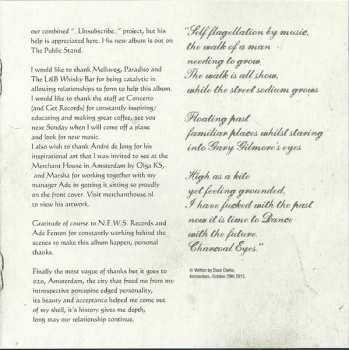 our combined "...Unsubscribe.." project, but his
help is appreciated here. His new album is out on
The Public Stand.
I would like to thank Melkweg, Paradiso and
The L&B Whisky Bar for being catalytic in
allowing relationships to form to help this album.
I would like to thank the staff at Concerto
(and Get Records) for constantly inspiring/
educating and making great coffee, see you
next Sunday when I will come off a plane
and look for new music.
I also wish to thank André de Jong for his
inspirational art that I was invited to see at the
Merchant House in Amsterdam by Olga KS,
and Marsha for working together with my
manager Ade in getting it sitting so proudly
on the front cover. Visit merchanthouse.nl
to view his artwork.
Gratitude of course to N.E.W.S. Records and
Ade Fenton for constantly working behind the
scenes to make this album happen, personal
thanks.
Finally the most vague of thanks but it goes to
020, Amsterdam, the city that freed me from my
introspective porcupine edged personality,
its beauty and acceptance helped me come out
of my shell, it's history gives me depth,
long may our relationship continue.
"Self flagellation by music,
the walk of a man
needing to grow,
The walk is all show,
while the street sodium grows
Floating past
familiar places whilst staring
into Gary Gilmore's eyes
High as a kite
yet feeling grounded,
I have fucked with the past
now it is time to Dance
with the future.
Charcoal Eyes."
© Written by Dave Clarke,
Amsterdam, October 29th 2015.